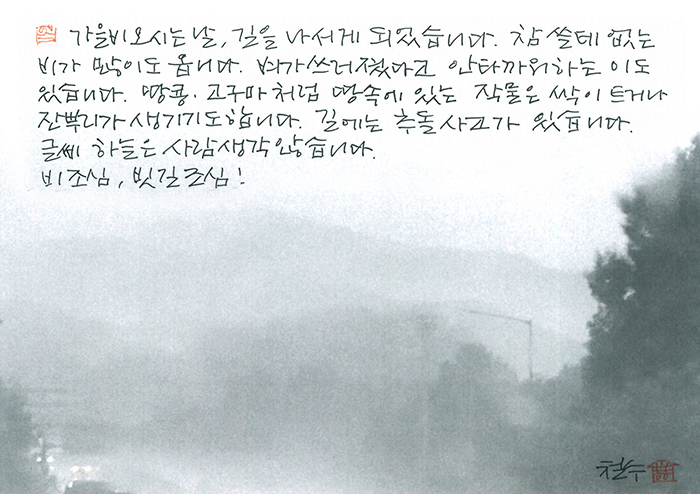 가을비 오시는 날, 길을 나서게 되었습니다. 참 쓸데 없는
비가 많이도 옵니다. 벼가 쓰러졌다고 안타까워하는 이도
있습니다. 땅콩·고구마처럼 땅속에 있는 작물은 싹이 트거나
잔뿌리가 생기기도 합니다. 길에는 추돌사고가 있습니다.
글쎄 하늘은 사람 생각 않습니다.
비조심, 빗길조심!
철수